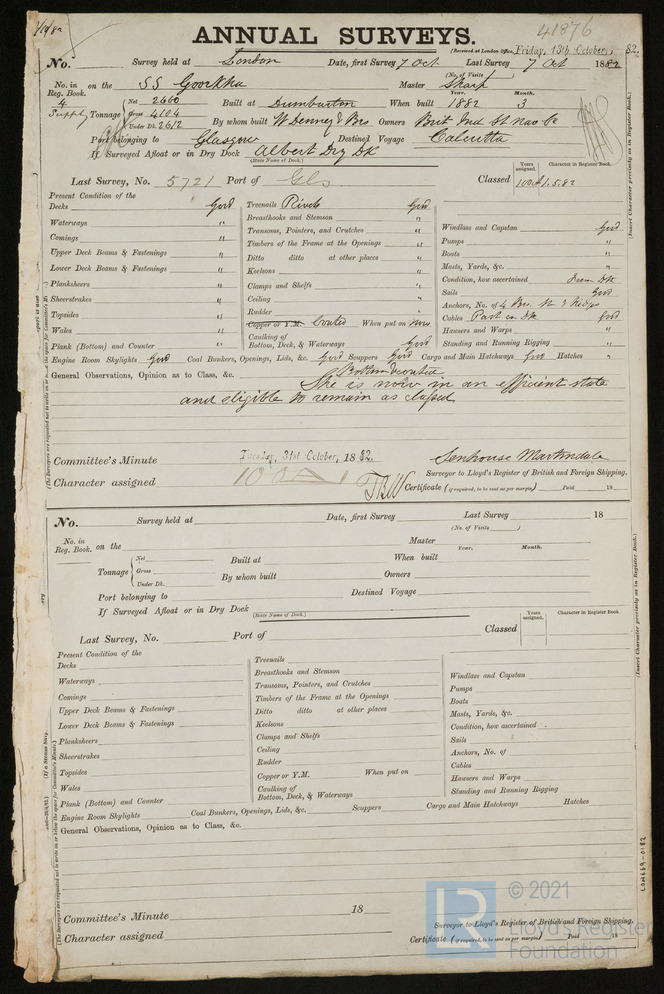 41876
ANNUAL SURVEYS.
(Received at London Office, Friday, 13th October, 82.
No. Survey held at London Date, first Survey 7 Oct Last Survey 7 Oct 1882
(No. of Visits )
No. in Reg. Book. on the SS Goorkha Master Sharp
4 Suppt Tonnage Net 2660 Built at Dumbarton When built Year. 1882 Month. 3
Gross 4104
Under Dk. 2612 By whom built W Denney & Bro Owners Brit Ind St Nav Co
Port belonging to Glasgow Destined Voyage Calcutta
If Surveyed Afloat or in Dry Dock Albert Dry Dk
(State Name of Dock.)
Years assigned. Character in Register Book.
Last Survey, No. 5721 Port of Gls Classed 100A1. 5.82
Present Condition of the
Decks Good
Waterways "
Comings "
Upper Deck Beams & Fastenings "
Lower Deck Beams & Fastenings "
Planksheers "
Sheerstrakes "
Topsides "
Wales "
Plank (Bottom) and Counter "
Treenails Rivets Good
Breasthooks and Stemson "
Transoms, Pointers, and Crutches "
Timbers of the Frame at the Openings "
Ditto ditto at other places "
Keelsons "
Clamps and Shelfs "
Ceiling "
Rudder "
Copper or Y.M. Coated When put on Now
Caulking of Bottom, Deck, & Waterways Good
Windlass and Capstan Good
Pumps "
Boats "
Masts, Yards, &c. "
Condition, how ascertained From Dk
Sails Good
Anchors, No. of 4 Bro. St & Kedges
Cables Part on Dk Good
Hawsers and Warps "
Standing and Running Rigging "
Engine Room Skylights Good Coal Bunkers, Openings, Lids, &c. Good Scuppers Good Cargo and Main Hatchways Good Hatches "
General Observations, Opinion as to Class, &c. Bottom Coated
She is now in an efficient state
and eligible to remain as classed
Committee's Minute Tuesday, 31st October, 1882. Senhouse Martindale
Surveyor to Lloyd's Register of British and Foreign Shipping.
Character assigned 100A1 Certificate (if required, to be sent as per margin) Paid 18
No. Survey held at Date, first Survey Last Survey 18
(No. of Visits )
No. in Reg. Book. on the Master
Tonnage Net Built at When built Year. Month.
Gross
Under Dk. By whom built Owners
Port belonging to Destined Voyage
If Surveyed Afloat or in Dry Dock
(State Name of Dock.)
Years assigned. Character in Register Book.
Last Survey, No. Port of Classed
Present Condition of the
Decks
Waterways
Comings
Upper Deck Beams & Fastenings
Lower Deck Beams & Fastenings
Planksheers
Sheerstrakes
Topsides
Wales
Plank (Bottom) and Counter
Treenails
Breasthooks and Stemson
Transoms, Pointers, and Crutches
Timbers of the Frame at the Openings
Ditto ditto at other places
Keelsons
Clamps and Shelfs
Ceiling
Rudder
Copper or Y.M. When put on
Caulking of Bottom, Deck, & Waterways
Windlass and Capstan
Pumps
Boats
Masts, Yards, &c.
Condition, how ascertained
Sails
Anchors, No. of
Cables
Hawsers and Warps
Standing and Running Rigging
Engine Room Skylights Coal Bunkers, Openings, Lids, &c. Scuppers Cargo and Main Hatchways Hatches
General Observations, Opinion as to Class, &c.
Committee's Minute 18
Surveyor to Lloyd's Register of British and Foreign Shipping.
Character assigned Certificate (if required, to be sent as per margin) Paid 18
(Insert Character precisely as in Register Book.)
(Insert Character precisely as in Register Book.)
LON669-0182
LR © 2021
Lloyd's Register
Foundation